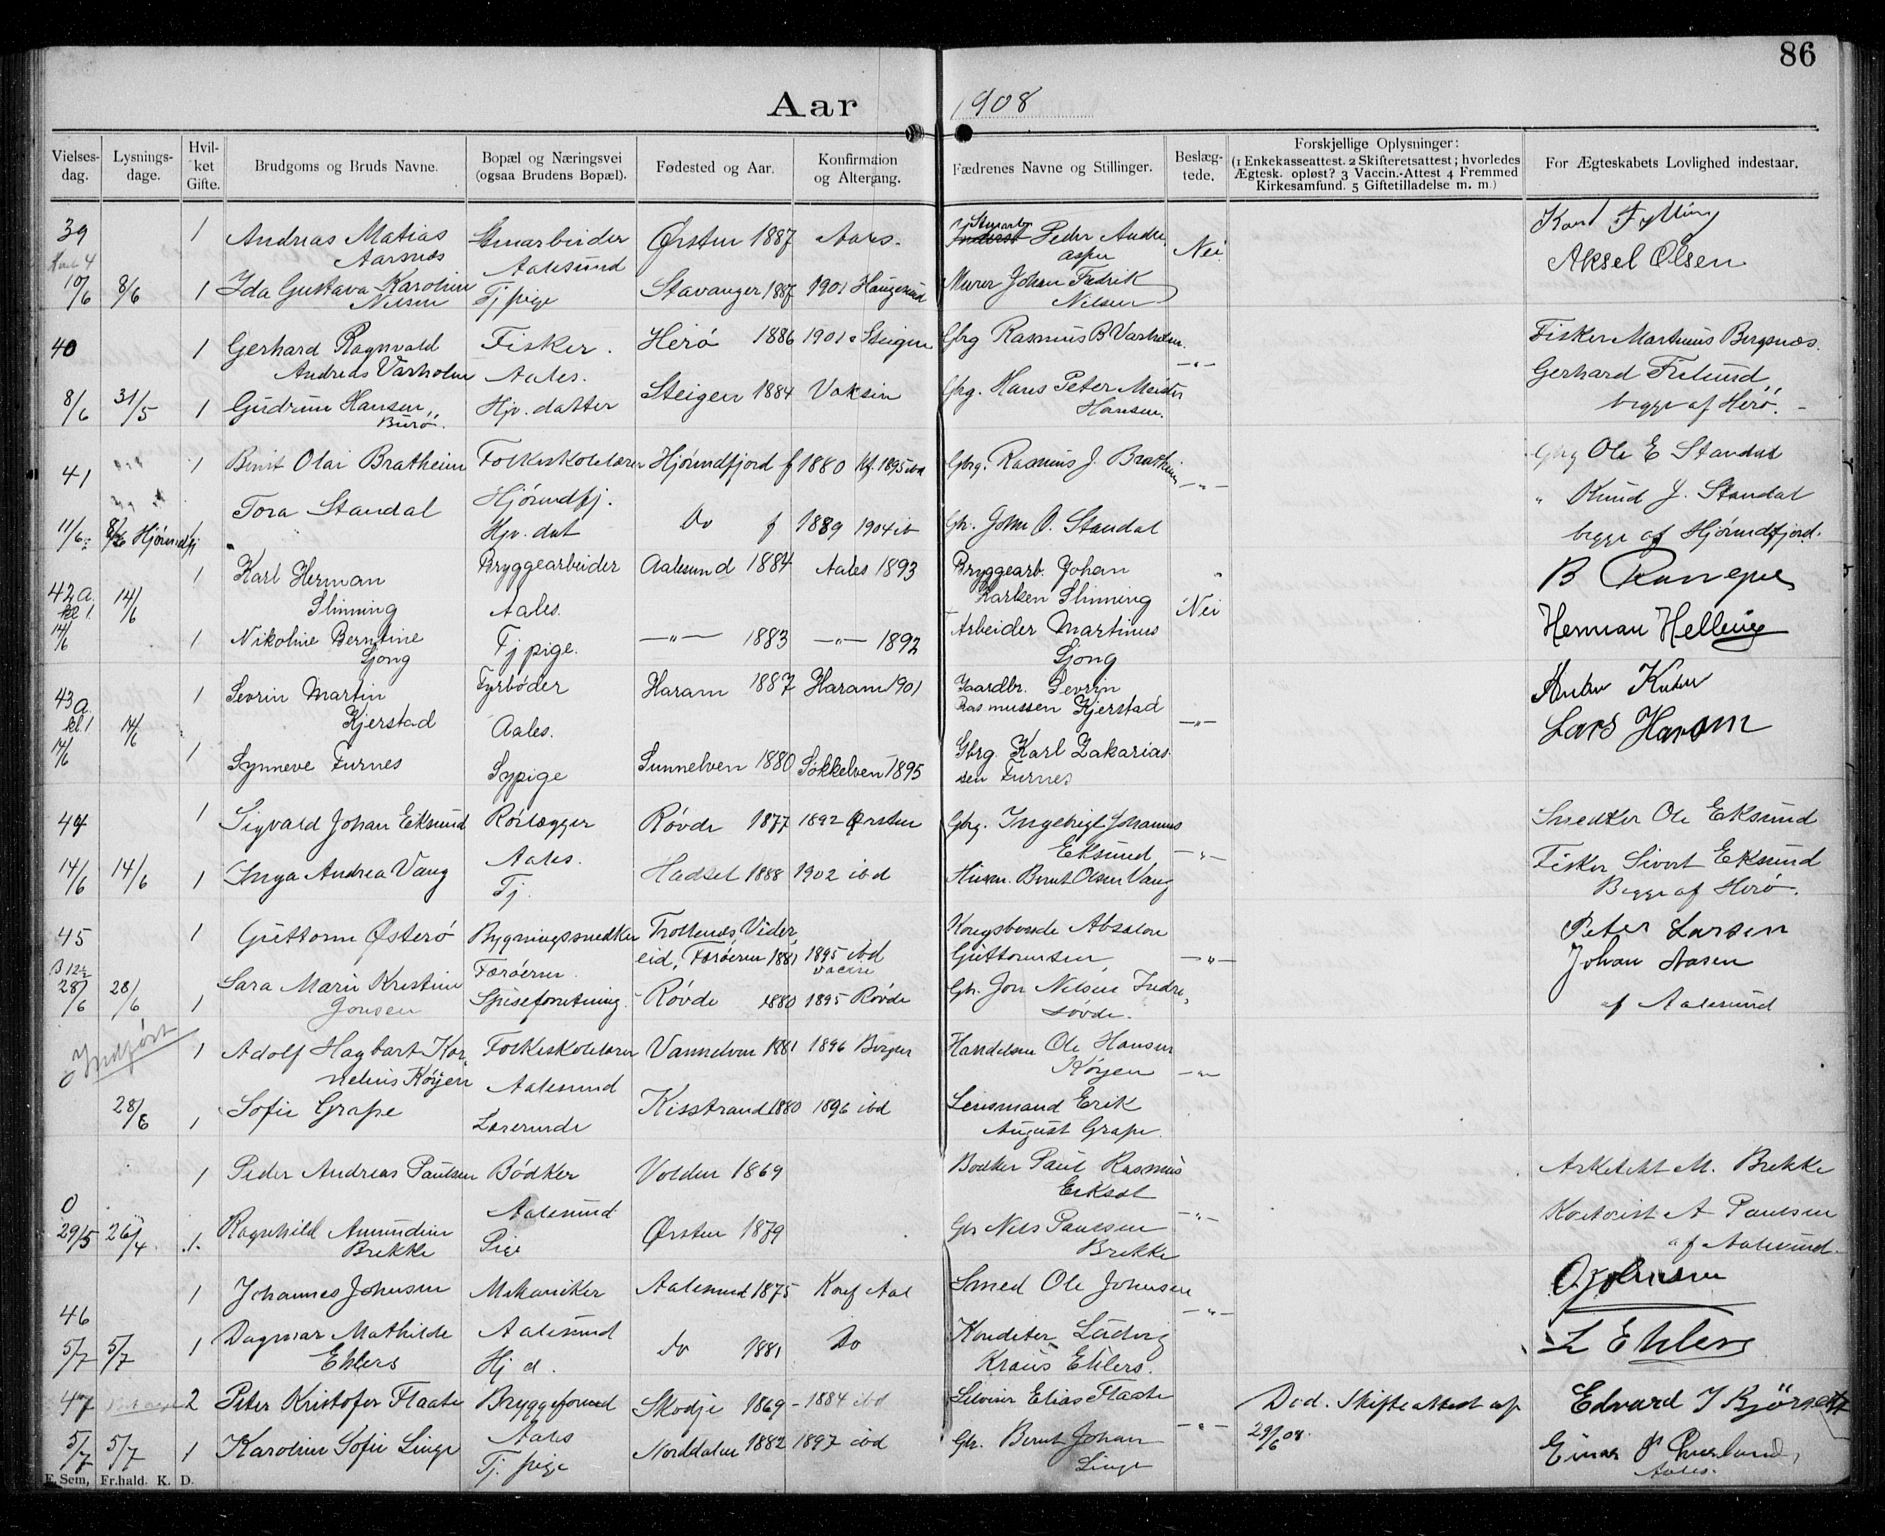 86
Aar 1908
Vielses-dag. Lysnings-dage. Hvil-ket Gifte. Brudgoms og Bruds Navne. Bopæl og Næringsvei (ogsaa Brudens Bopæl). Fødested og Aar. Konfirmation og Altergang. Fædrenes Navne og Stillinger. Beslæg-tede. Forskjellige Oplysninger: (1 Enkekasseattest. 2 Skifteretsattest; hvorledes Ægtesk. opløst? 3 Vaccin.-Attest 4 Fremmed Kirkesamfund. 5 Giftetilladelse m. m.) For Ægteskabets Lovlighed indestaar.
39 1 Andreas Matias Ørsten 1887 Aales. Peder Andre
Aarsnes Aalesund Nei Aksel Olsen
10/6 8/6 1 Ida Gustava Karoline Tj pige Stavanger 1887 1901 Haugesund Murer Johan Fredrik
Nilsen Nilsen
40 1 Gerhard Ragnvald Fisker. Herö 1886 1901 Steigen Gbrg Rasmus B Varholm Fisker Martinus Bergsnes.
Andreas Varholm Aales. -"- Gerhard Frilund,
8/6 31/5 1 Gudrun Hansen Hjv. datter Steigen 1884 Vaksin Gbrg. Hans Peter Meider begge af Herö.
Burö. Hansen.
41 1 Bernt Olai Bratheim Folkeskolelærer Hjørundfjord f 1880 kf. 1895 ibd Gbrg. Rasmus J. Bratheim Gbrg Ole E Standal
Hjørundfj. -"- " Knud J. Standal
11/6 Hjørundfj 1 Tora Standal Hjv. dat Do f 1889 1904 ib Gbr. John O. Standal begge af Hjørundfjord.
42a. 1 Karl Herman Bryggearbeider Aalesund 1884 Aales 1893 Bryggearb. Johan
kl 1 14/6 Slinning Aales. Karlsen Slinning Nei Herman Hellevig
14/6 1 Nikoline Berntine Tj pige. -"- 1883 -"- 1892 Arbeider Martinus
Sjong Sjong
43a 1 Sevrin Martin Fyrbøder Haram 1887 Haram 1901 Gaardbr. Sevrin
kl 1 14/6 Kjerstad Aales. Rasmussen Kjerstad -"- Lars Haram
14/6 1 Synneve Furnes Sypige Sunnelven 1880 Søkkelven 1895 Gbrg. Karl Zakarias-
sen Furnes
44 1 Sigvald Johan Eksund Rörlægger Røvde 1877 1892 Ørsten Gbrg. Ingebrigt Johannes Smedker Ole Eksund
Aales. Eksund -"- Fisker Sivert Eksund
14/6 14/6 1 Inga Andrea Vang Tj. Hadsel 1888 1902 ibd Husm. Bernt Olsen Vang Begge af Herö.
45 1 Guttorm Østerö Bygningssnedker Trollenes Vider- Kongsbonde Absalon Peter Larsen
B 12½ Færöerne. eid, Færöerne 1881 1895 ibd Guttormsen -"- Johan Aasen
28/6 28/6 1 Sara Marie Kristine Spiseforretning. Røvde 1880 1895 Røvde Gbr. Jon Nilsen Indre- af Aalesund
Jonsen søvde.
Indført 1 Adolf Hagbart Kor- Folkeskolelærer Vannelven 1881 1896 Bergen Handelsm Ole Hansen
nelius Körjen Aalesund Körjen -"-
28/6 1 Sofie Grape Lærerinde Kisstrand 1880 1896 ibd Lensmand Erik
August Grape.
1 Peder Andreas Paulsen Bödker Volden 1869 Bödker Paul Rasmus Arkitekt M. Brekke
0 Aalesund Eiksæt -"- Kontorist A Paulsen
29/5 26/4 1. Ragnhild Amundine Pige Ørsten 1879 Gbr Nils Paulsen af Aalesund.
Brekke Brekke
1 Johannes Johnsen Mekaniker Aalesund 1875 Konf Aal Smed Ole Johnsen O Johnsen
46 Aalesund -"-
5/7 5/7 1 Dagmar Mathilde Hj d. do 1881 Do Konditer Ludvig L Ehlers
Ehlers Kraus Ehlers.
47 2 Peter Kristofer Flaate Bryggeformd Skodje 1869 - 1884 ibd Elias Flaate Död. Skifteattest af Edvard J Bjørseth
Aales -"- 29/6 08.
5/7 5/7 1 Karoline Sofie Linge Tj. pige Norddalen 1882 1897 ibd Gbr. Bernt Johan Einar
Linge Aales.
E. Sem, Fr.hald. K. D.